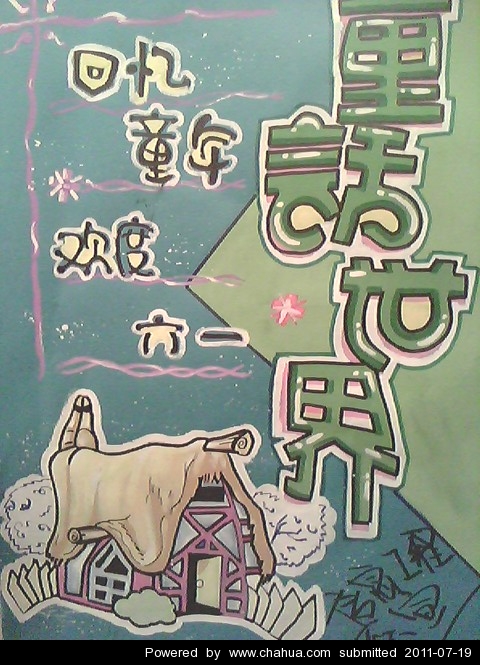 童话世界
回忆
童年
欢度
六一
工程
Powered by www.chahua.com submitted 2011-07-19